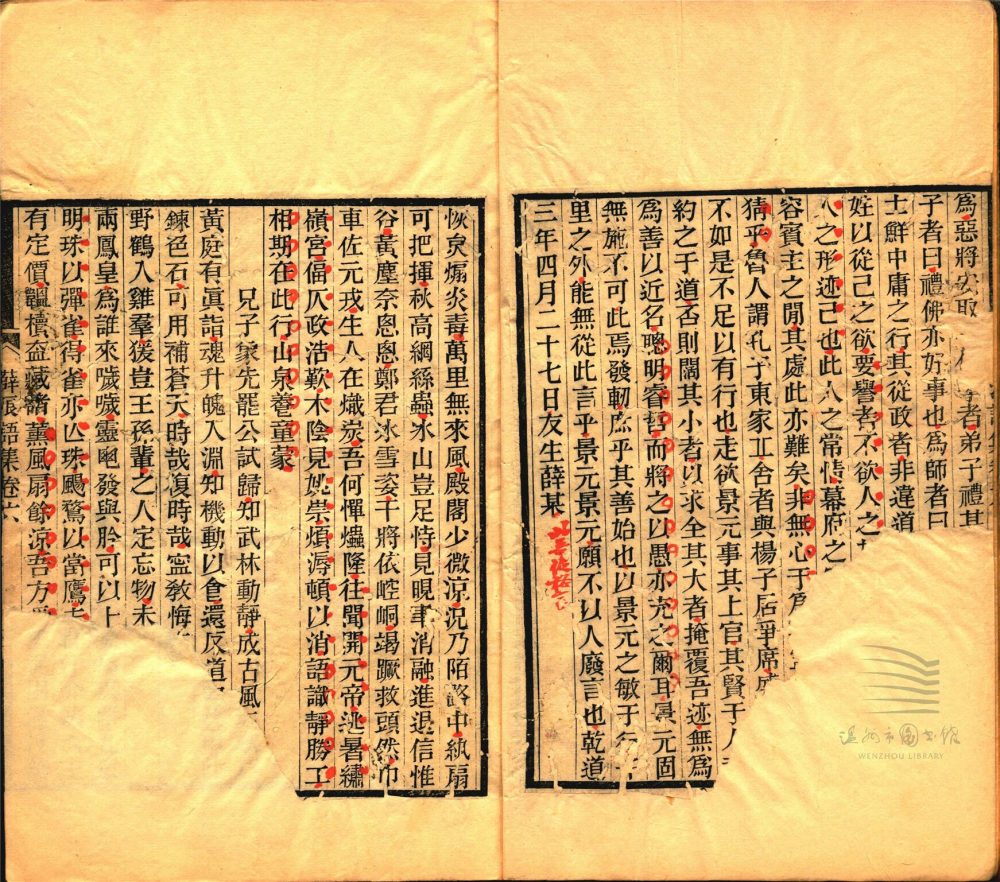 為惡將安取
子者曰禮佛亦好事也為師者曰
士鮮中庸之行其從政者非違道
姓以從己之欲要譽者不欲人之
人之形迹己也此人之常情幕府之
容賓主之閒其處此亦難矣非無心于
猜乎魯人謂孔子東家丘舍者與楊子居爭席
不如是不足以有行也走欲景元事其上官其賢于人
約之于道否則闊其小者以求全其大者掩覆吾迹無為
為善以近名聰明睿哲而將之以愚亦充之爾耳景元固
無施不可此焉發軔庶乎其善始也以景元之敏于行
里之外能無從此言乎景元景元願不以人廢言也乾道
三年四月二十七日友生薛某
恢炱煽炎毒萬里無來風殿閣少微涼況乃陌路中紈扇
可把揮秋高網絲蟲冰山豈足恃見晛聿消融進退信惟
谷黃塵奈恖恖鄭君冰雪委干將依崆峒竭蹶救頭然巾
車佐元戎生人在熾炭吾何憚爞隆往聞開元帝逃暑繡
嶺宮偪仄政浩歎木陰見媿崇煩溽頓以消語識靜勝工
相期在此行山泉養童蒙
兄子象先罷公試歸知武林動靜成古風
黃庭有眞詣魂升魄入淵知機動以會還反道
鍊色石可用補蒼天時哉復時哉寍敎悔
野鶴入雞羣猨豈王孫輩之人定忘物未
兩鳳皇為誰來噦噦靈鼉發與肣可以卜
明珠以彈雀得雀亦亾珠颺鷙以當鷹
有定價韞櫝盍藏諸薰風扇餘涼吾方
薛浪語集卷六
WENZHOU LIBRARY